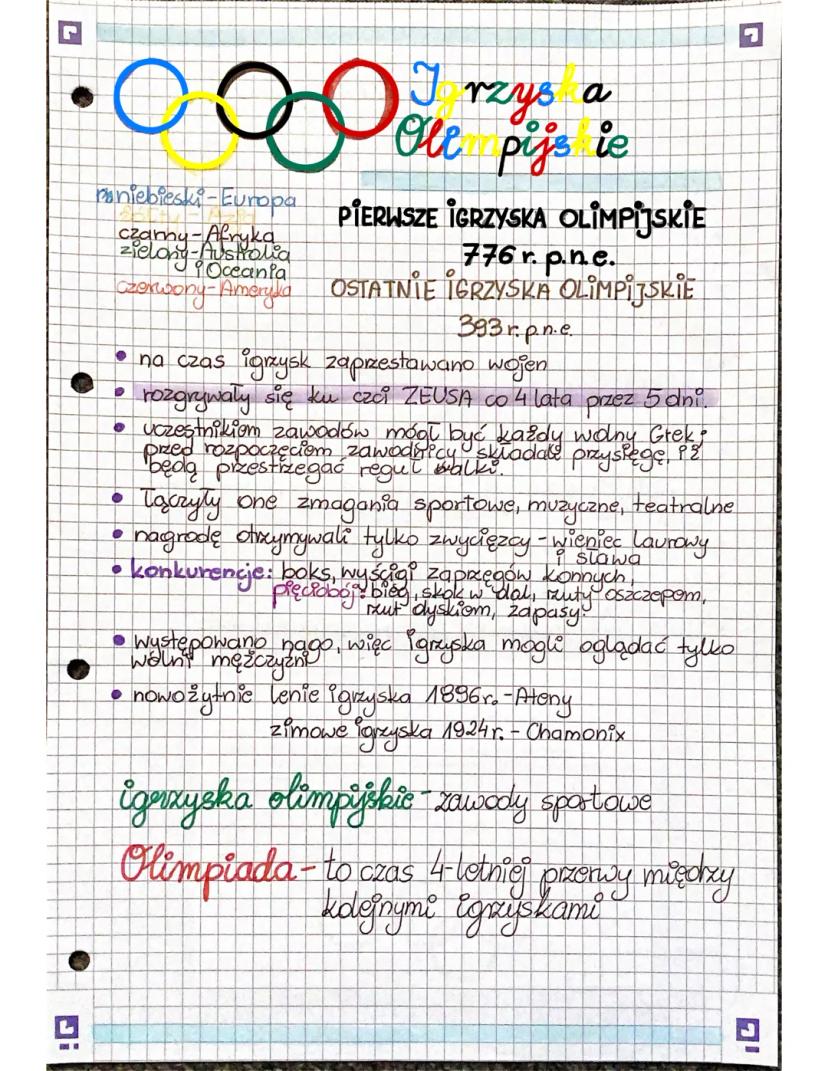 Igrzyska
Olimpijskie
niebieski-Europa
żółty-Azja
czarny-Afryka
zielony-Australia
i Oceania
czerwony-Ameryka
PIERWSZE IGRZYSKA OLIMPIJSKIE
776 r. p.n.e.
OSTATNIE IGRZYSKA OLIMPIJSKIE
393 r. p.n.e.
• na czas igrzysk zaprzestawano wojen
• rozgrywały się ku czci ZEUSA co 4 lata przez 5 dni.
• uczestnikiem zawodów mógł być każdy wolny Grek;
przed rozpoczęciem zawodnicy składali przysięgę, iż
będą przestrzegać reguł walki.
• łączyły one zmagania sportowe, muzyczne, teatralne
• nagrodę otrzymywali tylko zwycięzcy - wieniec laurowy
i sława
• konkurencje: boks, wyścigi zaprzęgów konnych,
pięciobój: bieg, skok w dal, rzuty oszczepem,
rzut dyskiem, zapasy.
• występowano nago, więc igrzyska mogli oglądać tylko
wolni mężczyźni
• nowożytnie lenie igrzyska 1896r. - Ateny
zimowe igrzyska 1924r. - Chamonix
igrzyska olimpijskie - zawody sportowe
Olimpiada - to czas 4-letniej przerwy między
kolejnymi igrzyskami